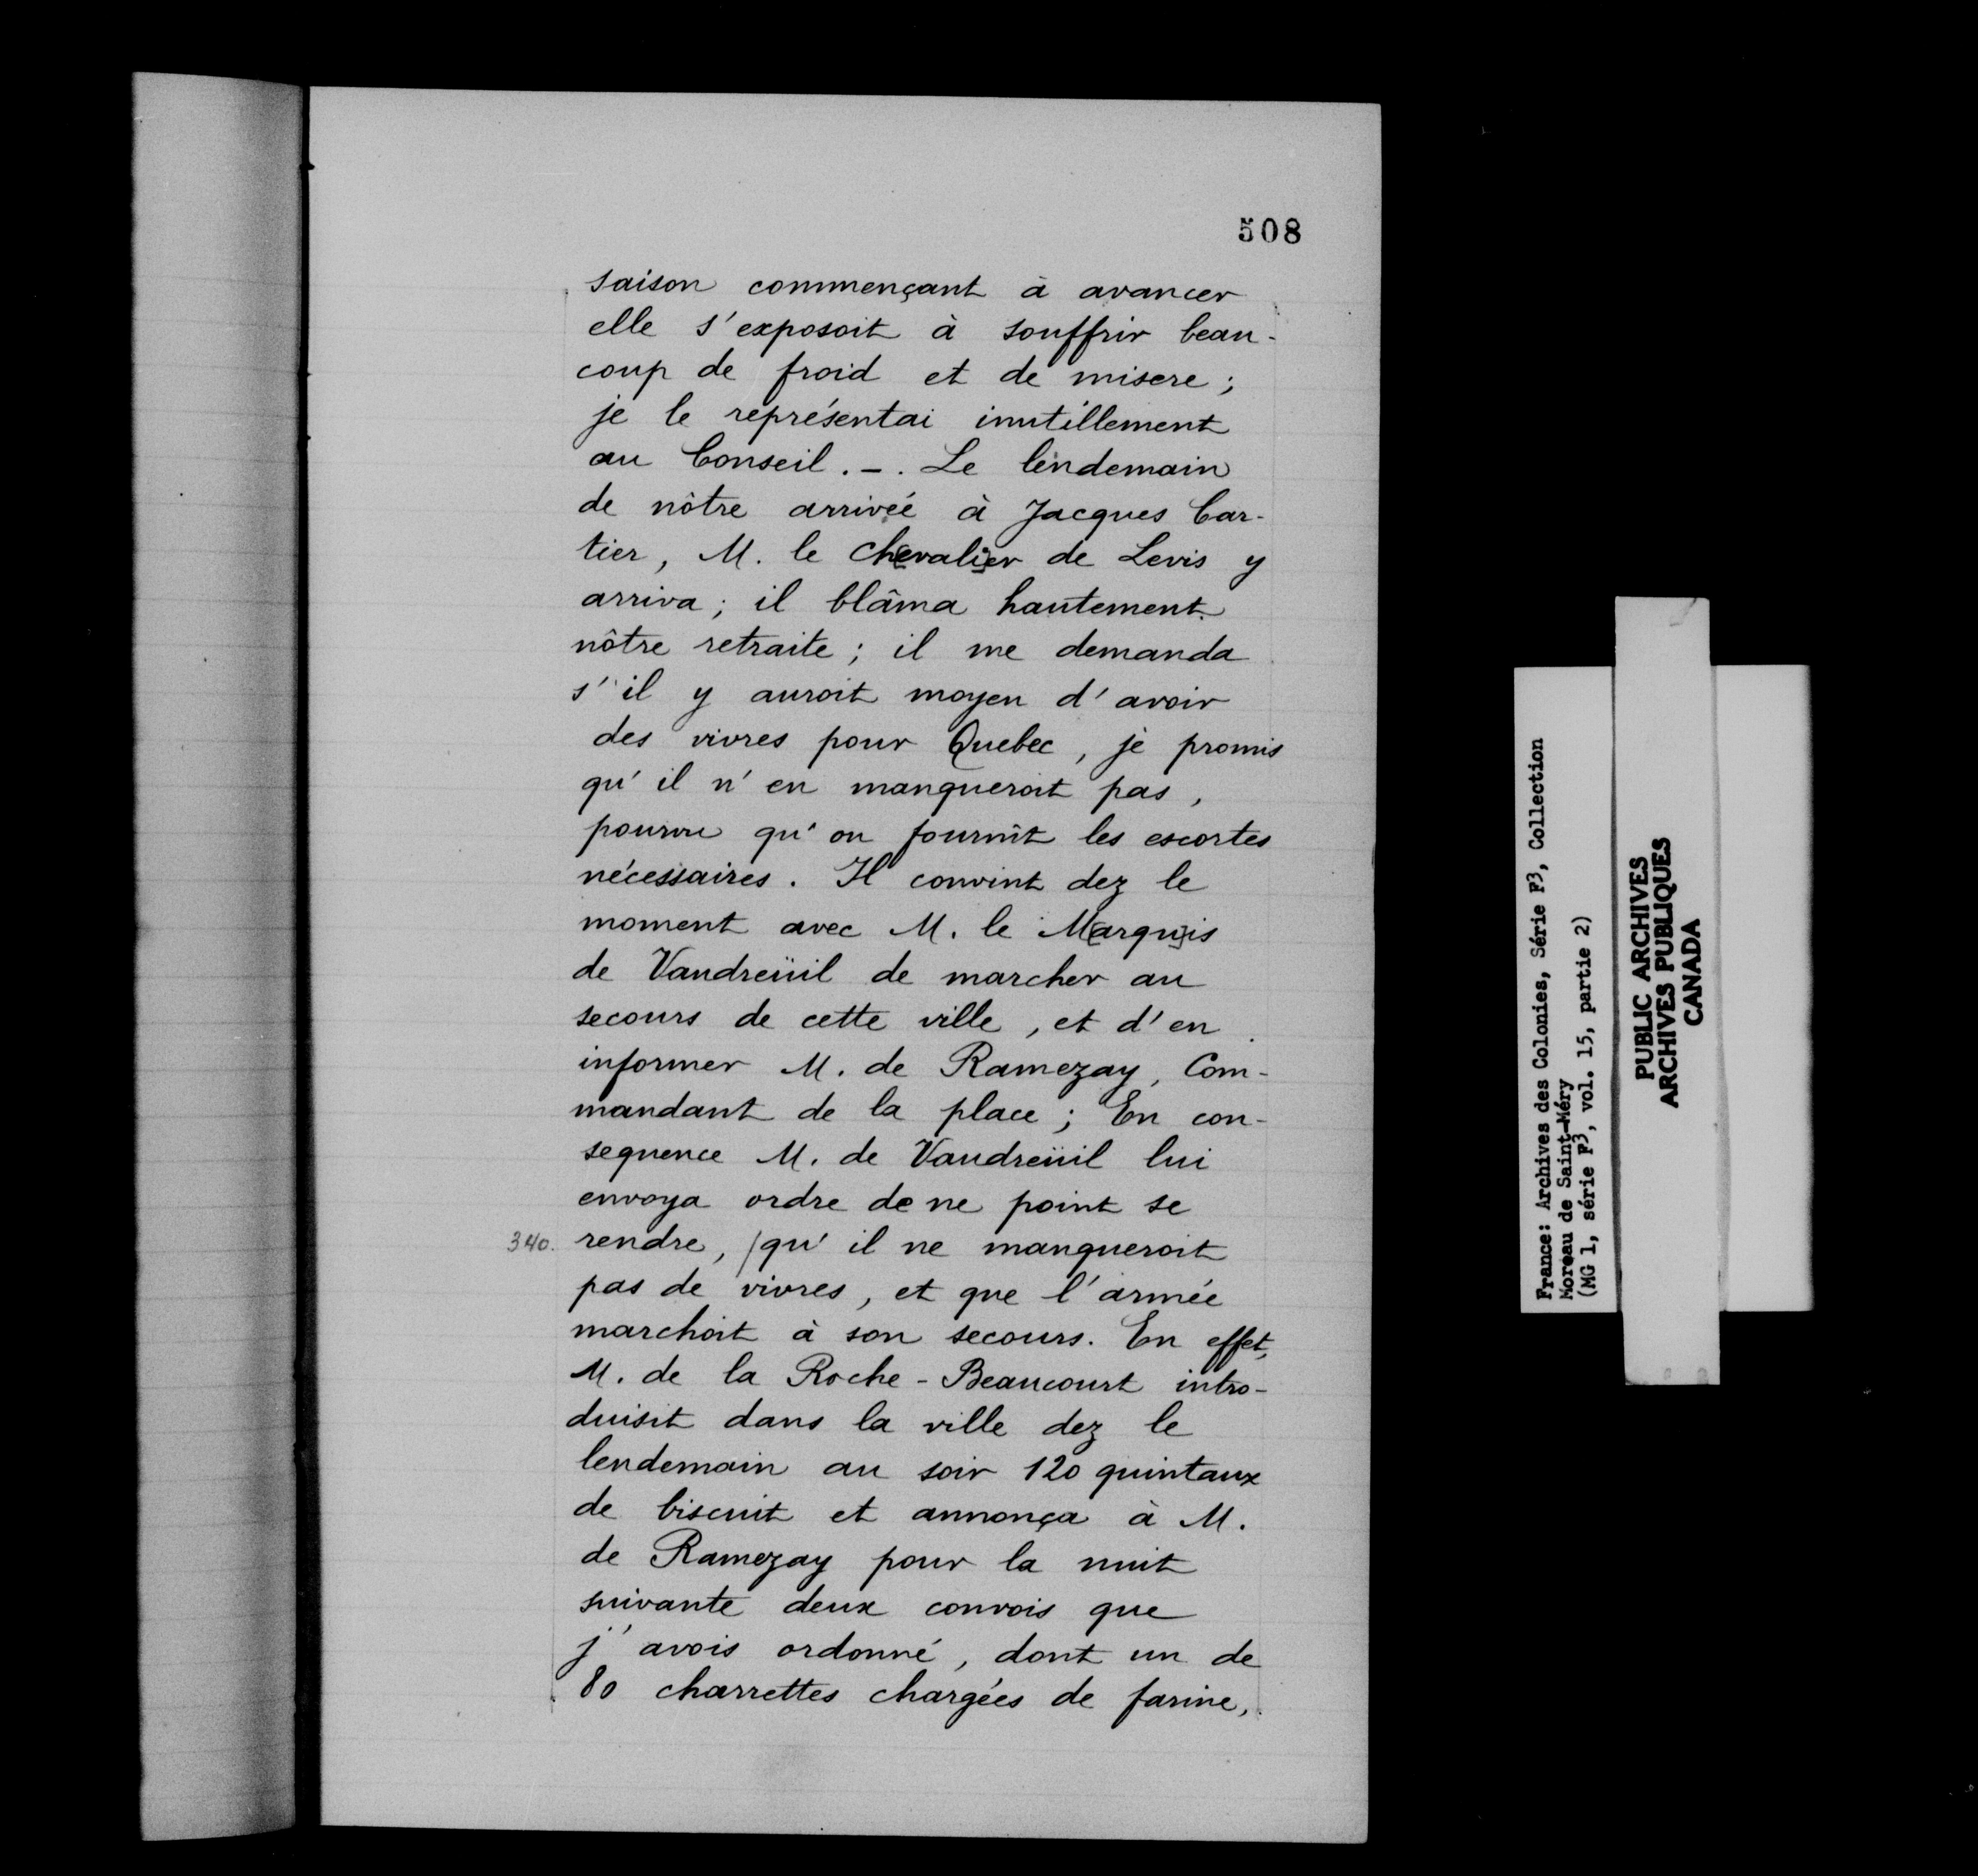 508
saison commençant à avancer
elle s'exposoit à souffrir beau-
coup de froid et de misere;
je le représentai inutillement
au Conseil. _. Le lendemain
de nôtre arrivéé à Jacques Car-
tier, M. le Ch[evali]er de Levis y
arriva; il blâma hautement
nôtre retraite; il me demanda
s'il y auroit moyen d'avoir
des vivres pour Quebec, je promis
qu'il n'en manqueroit pas,
pourvu qu'on fournît les escortes
nécessaires. Il convint dez le
moment avec M. le M[arqu]is
de Vaudreüil de marcher au
secours de cette ville, et d'en
informer M. de Ramezay, Com-
mandant de la place; En con-
sequence M. de Vaudreüil lui
envoya ordre de ne point se
340. rendre, /qu'il ne manqueroit
pas de vivres, et que l'armée
marchoit à son secours. En effet,
M. de la Roche-Beaucourt intro-
duisit dans la ville dez le
lendemain au soir 120 quintaux
de biscuit et annonça à M.
de Ramezay pour la nuit
suivante deux convois que
j'avois ordonné, dont un de
80 charrettes chargées de farine,
France: Archives des Colonies, Série F3, Collection
Moreau de Saint-Méry
(MG 1, série F3, vol. 15, partie 2)
PUBLIC ARCHIVES
ARCHIVES PUBLIQUES
CANADA